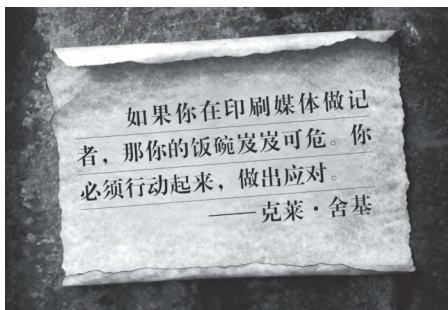 如果你在印刷媒体做记
者，那你的饭碗岌岌可危。你
必须行动起来，做出应对。
——克莱·舍基